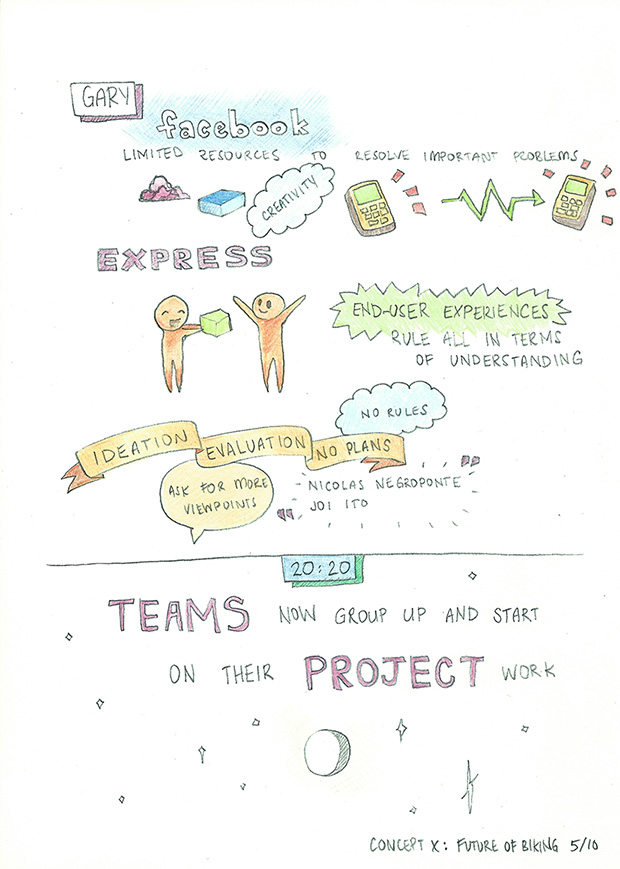 GARY
facebook
LIMITED RESOURCES TO RESOLVE IMPORTANT PROBLEMS
CREATIVITY
EXPRESS
END-USER EXPERIENCES
RULE ALL IN TERMS
OF UNDERSTANDING
NO RULES
IDEATION EVALUATION NO PLANS
ASK FOR MORE
VIEWPOINTS
NICOLAS NEGROPONTE
JOI ITO
20:20
TEAMS NOW GROUP UP AND START
ON THEIR PROJECT WORK
CONCEPT X: FUTURE OF BIKING 5/10